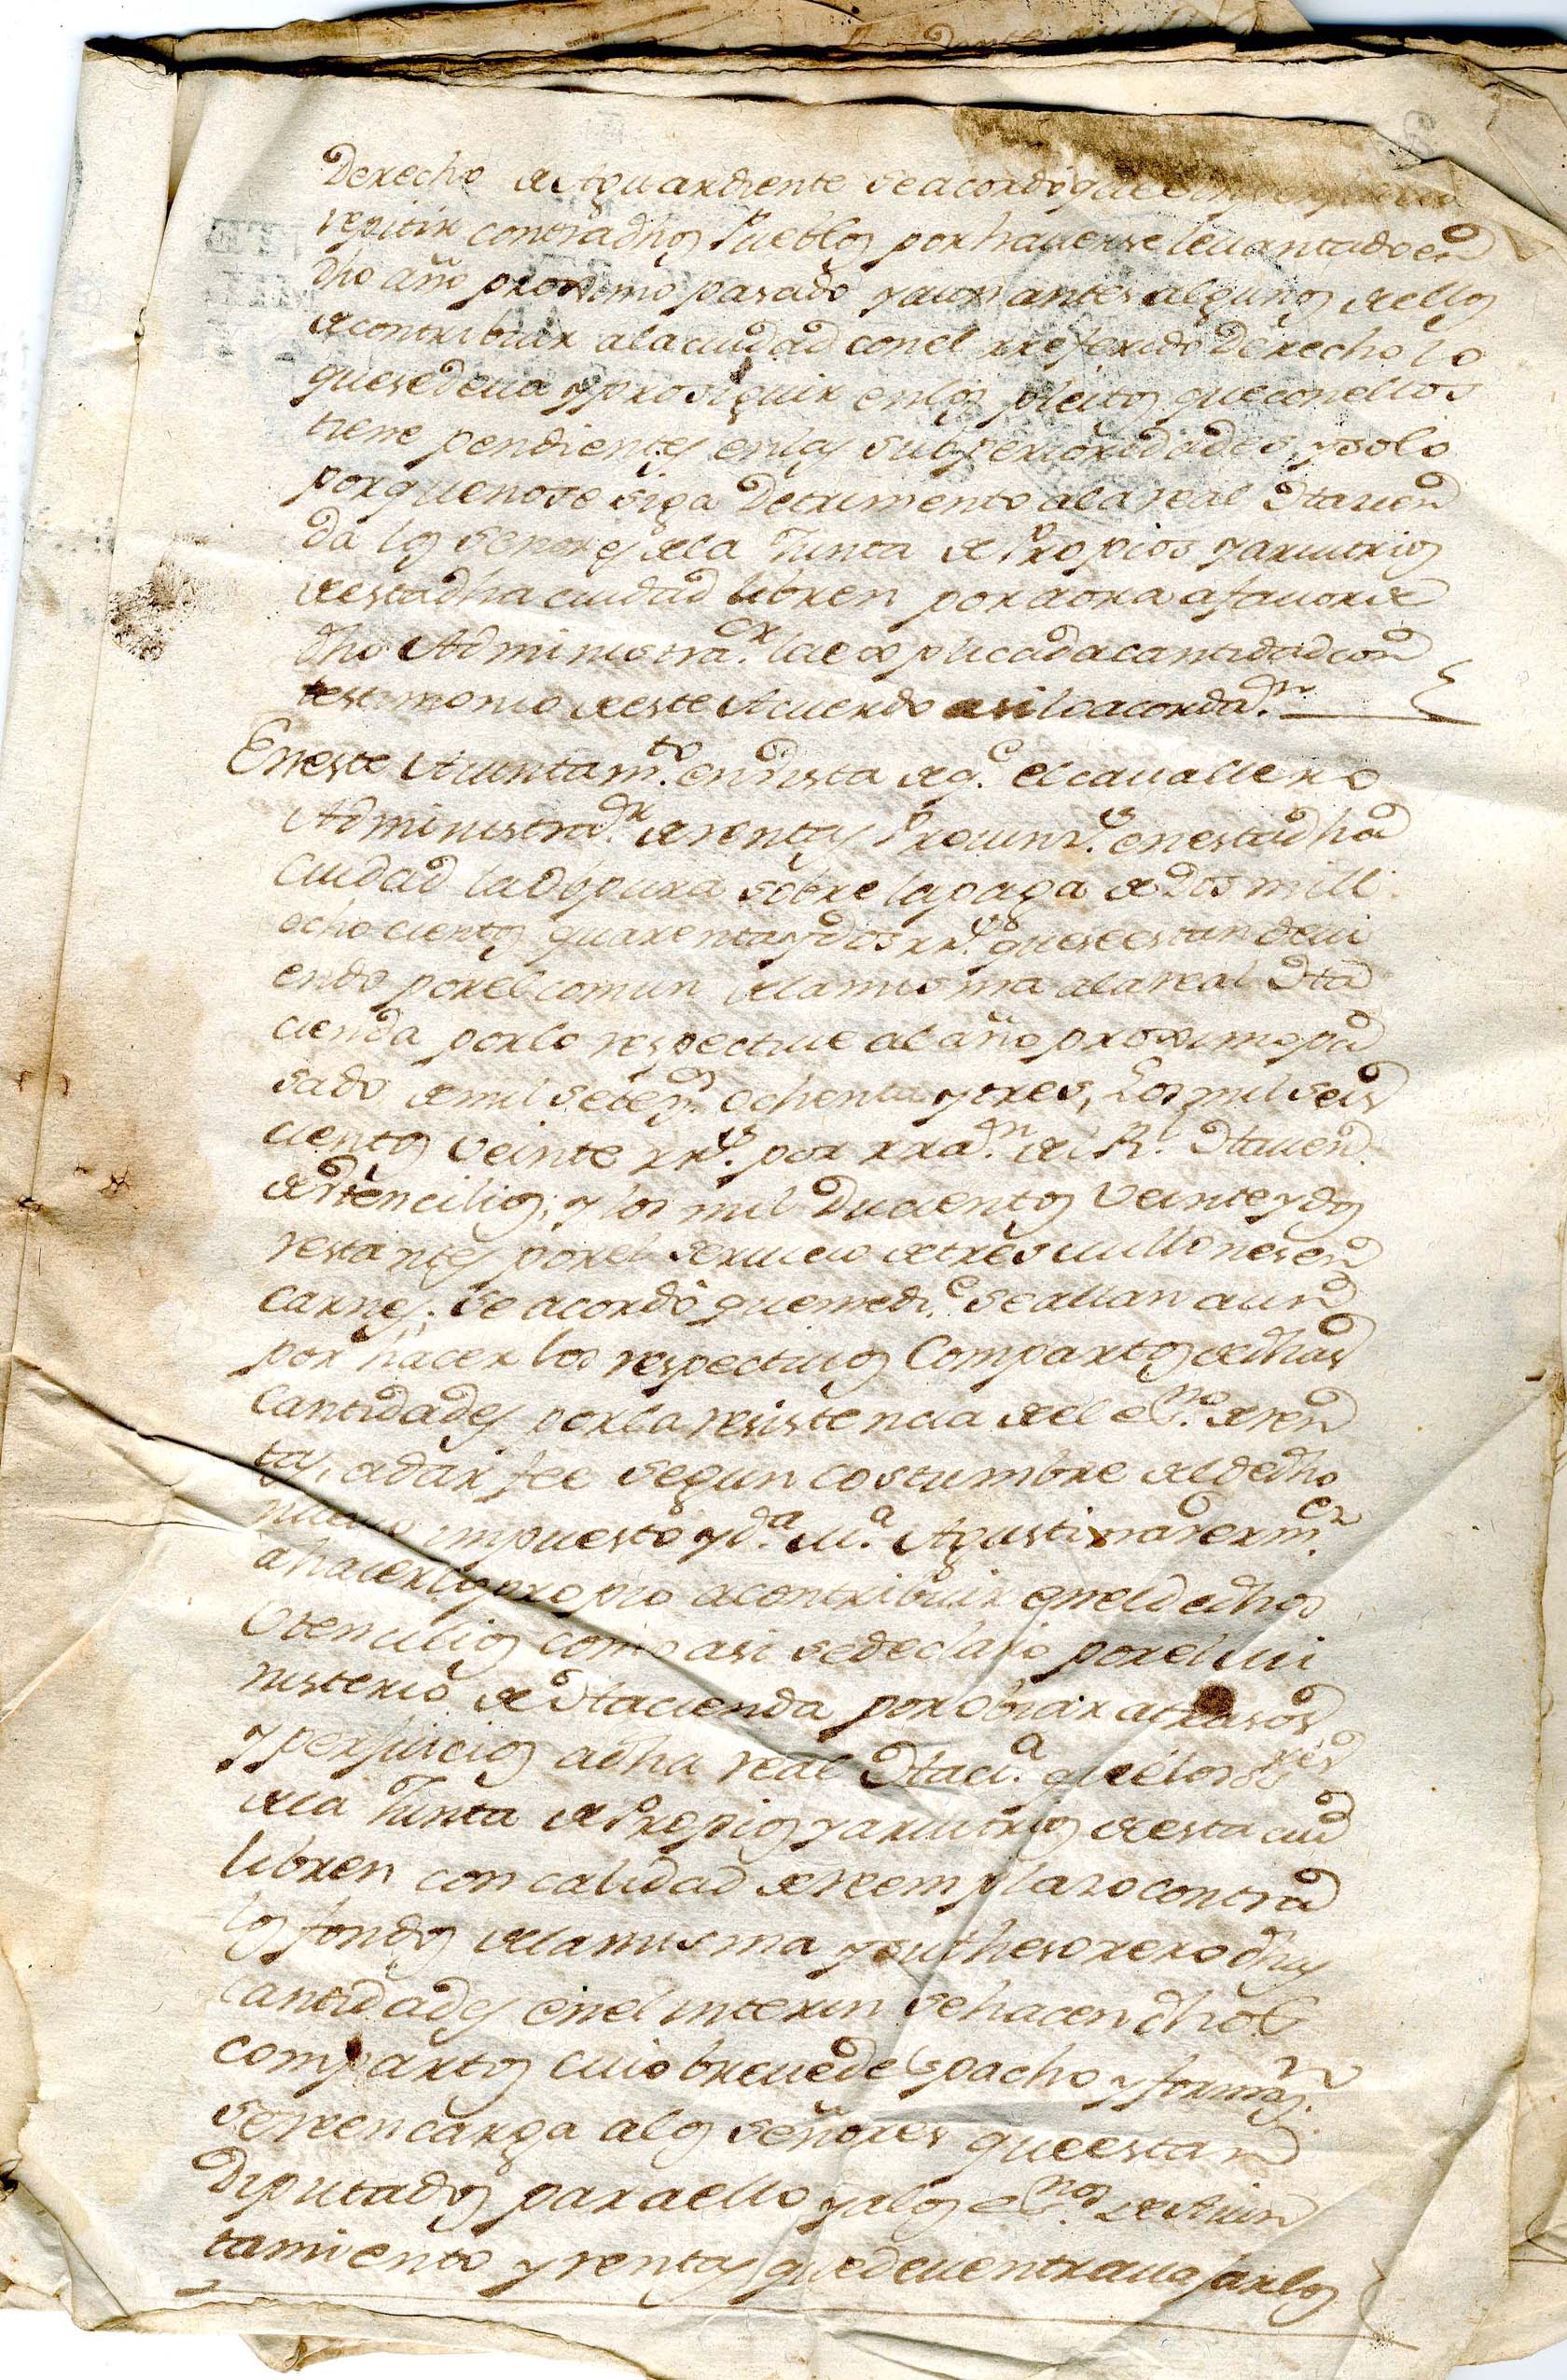 Derecho de Aguardiente se acordó que sin perjuicio
repitir contra dhos Pueblos por hauerse leuantado en
dho año proximo pasado y aun antes algunos de ellos
a contribuir a la ciudad con el rreferido Derecho lo
que se deua y proseguir en los pleitos que con ellos
tiene pendientes en las superioridades, y solo
por que no se siga Detrimento a la real Hacien
da los Señores de la Junta de Propios y aruitrios
de esta dha ciudad libren por aora a fauor de
dho Administra.or la explicada cantidad con
testimonio de este Acuerdo asi lo acorda.n
En este Aiuntam.to en vista de q.e el cauallero
Administrad.r de rentas Prouinz.s en esta dha
Ciudad la d pura sobre la paga de Dos mill
ocho cientos quarenta y dos rr.s que se estan deui
endo por el comun de la misma a la real Ha
cienda por lo respectiue al año proximo pa
sado de mil setez.os ochenta y tres, Los mil seis
cientos veinte rr.s por rra.n de R.l Hacien.
de Vtencilios, y los mil Ducientos Veinte y dos
restantes por el seruicio de tres millones en
carnes; Se acordó que medi.e se allan aun
por hacer los respectiuos Compartos de dhas
Cantidades por la resistencia de el es.no de ren
tas, a dar fee segun costumbre al de dho
nueuo impuesto y d.a M.a Agustina rexm.en
a hacer lo propio a contribuir en el de dhos
Vtencilios como asi se declaro por el mi
nisterio de Hacienda por obiar atrasos
y perjuicios a dha real Haci.a que los ss.res
de la Junta de Propios y aruitrios de esta ciud
libren con calidad de reemplazo contra
los fondos de la misma y su thesorero dhas
Cantidades en el interin se hacen dhos
compartos cuio breue despacho y formaz.n
se reencarga a los Señores que estan
Diputados para ello y a los es.nos de Aiun
tamiento y rentas que deuen trauajarlos